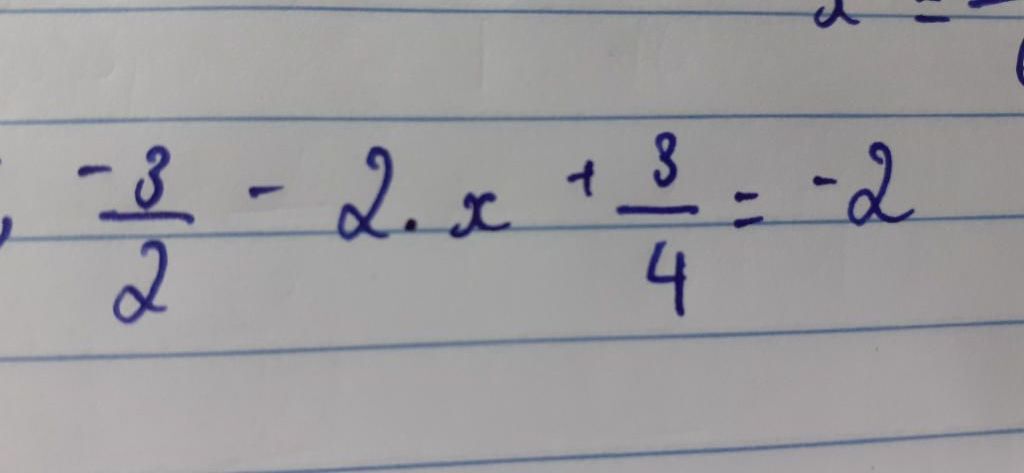 -3/2 - 2. x + 3/4 = -2